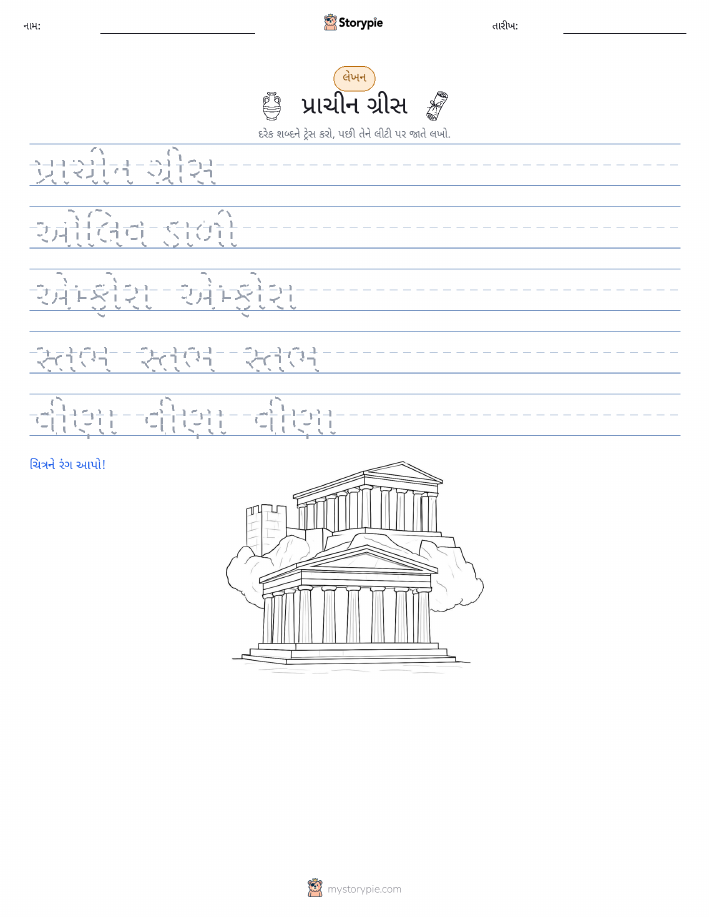 નામ:
Storypie
તારીખ:
લેખન
પ્રાચીન ગ્રીસ
દરેક શબ્દને ટ્રેસ કરો, પછી તેને લીટી પર જાતે લખો.
પ્રાચીન ગ્રીસ
ઓલિવ ડાળી
એમ્ફોરા એમ્ફોરા
સ્તંભ સ્તંભ સ્તંભ
વીણા વીણા વીણા
ચિત્રને રંગ આપો!
mystorypie.com